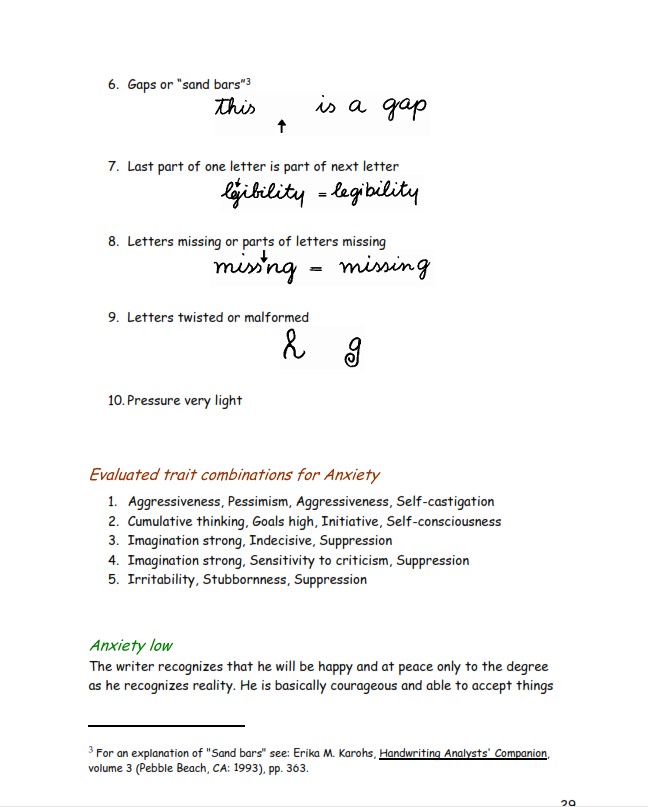 6. Gaps or "sand bars"³
this is a gap
7. Last part of one letter is part of next letter
lgibility = legibility
8. Letters missing or parts of letters missing
missng = missing
9. Letters twisted or malformed
h g
10. Pressure very light
Evaluated trait combinations for Anxiety
1. Aggressiveness, Pessimism, Aggressiveness, Self-castigation
2. Cumulative thinking, Goals high, Initiative, Self-consciousness
3. Imagination strong, Indecisive, Suppression
4. Imagination strong, Sensitivity to criticism, Suppression
5. Irritability, Stubbornness, Suppression
Anxiety low
The writer recognizes that he will be happy and at peace only to the degree
as he recognizes reality. He is basically courageous and able to accept things
³ For an explanation of "Sand bars" see: Erika M. Karohs, Handwriting Analysts' Companion,
volume 3 (Pebble Beach, CA: 1993), pp. 363.
29